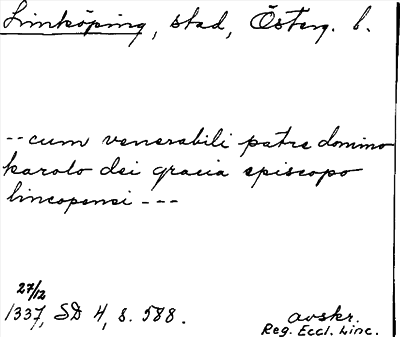 Linköping, stad, Österg. l.
-- cum venerabili patre domino
karolo dei gracia episcopo
lincopensi ---
27/12
1337, SD 4, s. 588.
avskr.
Reg. Eccl. Linc.